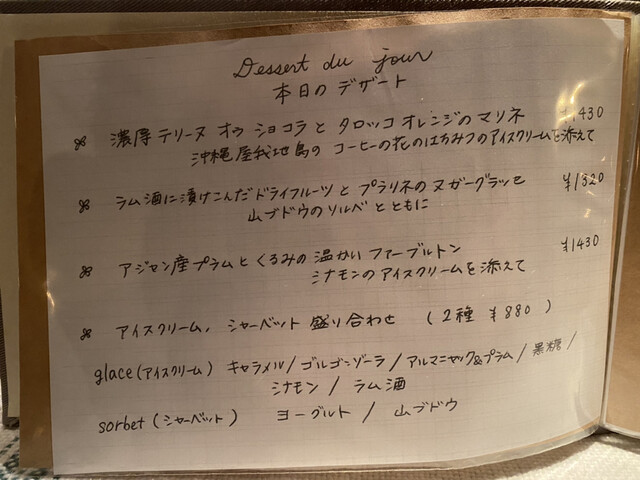 Dessert du jour
本日のデザート
濃厚テリーヌ オゥ ショコラと タロッコ オレンジのマリネ ¥1430
沖縄屋我地島の コーヒーの花のはちみつのアイスクリームを添えて
ラム酒に漬けこんだドライフルーツと プラリネの ヌガーグラッセ ¥1320
山ブドウのソルベとともに
アジャン産プラムと くるみの 温かい ファーブルトン ¥1430
シナモンのアイスクリームを添えて
アイスクリーム、シャーベット 盛り合わせ (2種 ¥880)
glace(アイスクリーム) キャラメル/ゴルゴンゾーラ/アルマニャック&プラム/黒糖/
シナモン / ラム酒
sorbet(シャーベット) ヨーグルト / 山ブドウ